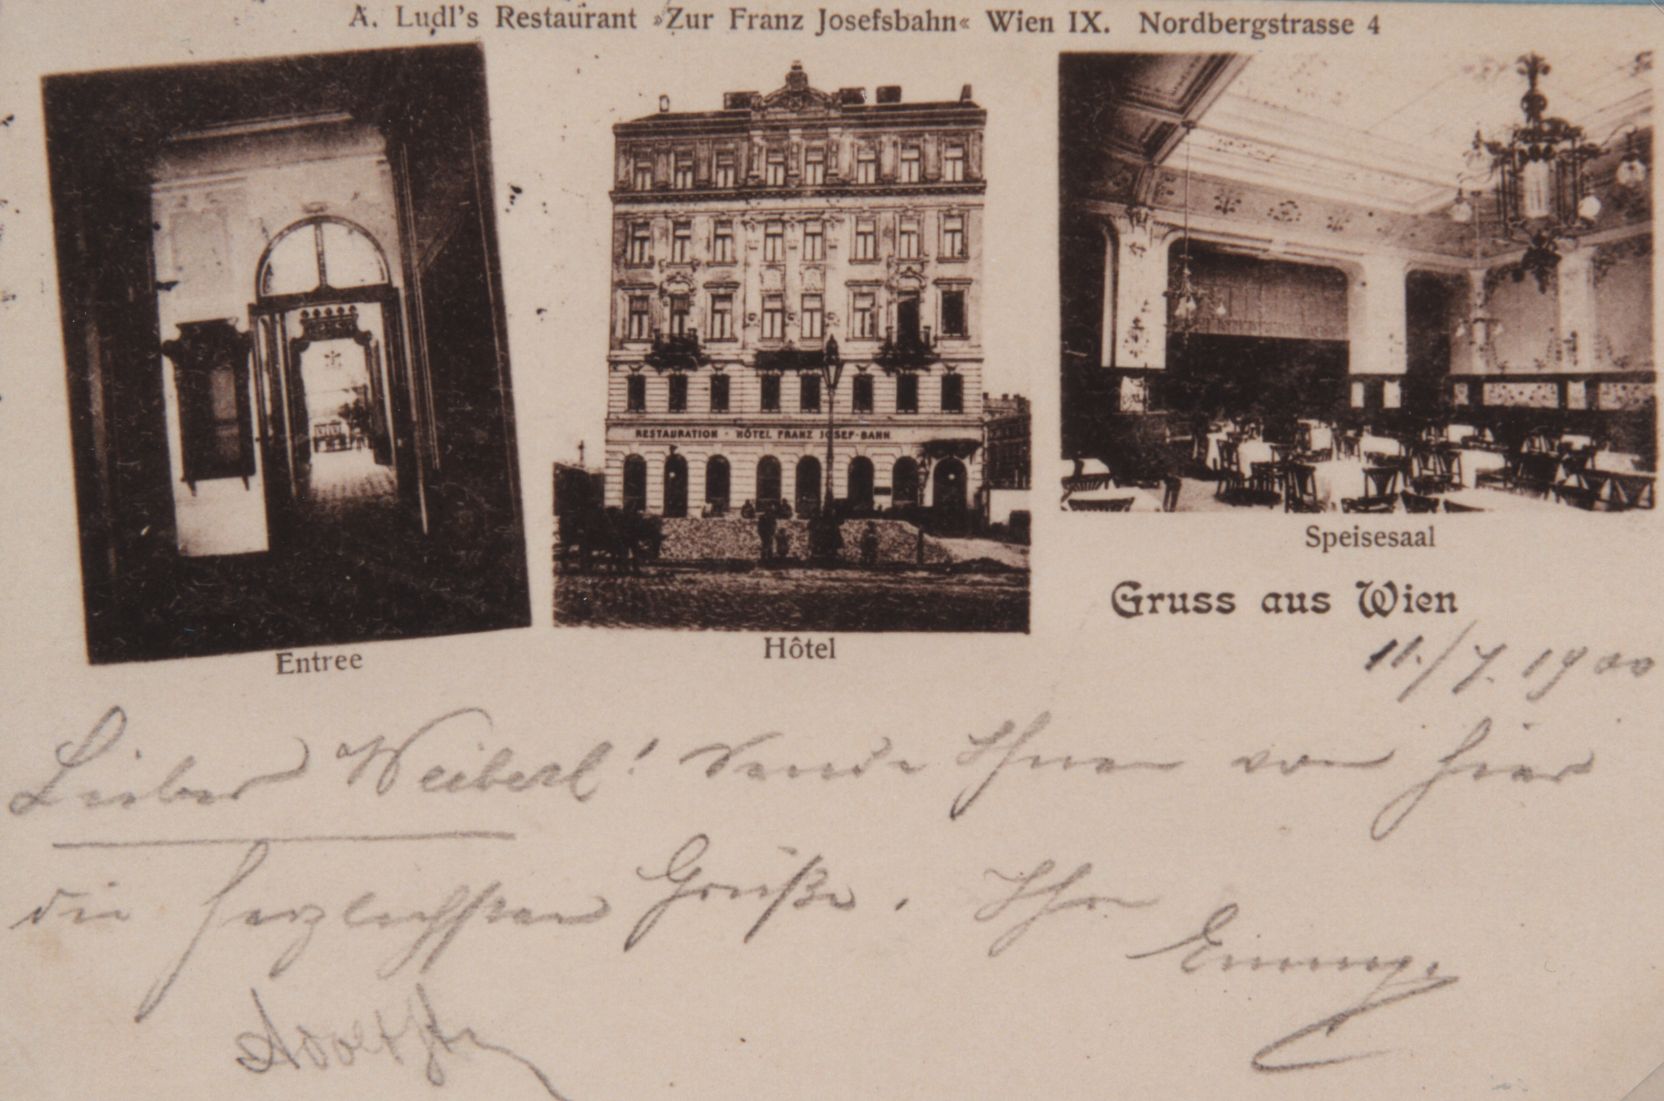 A. Ludl's Restaurant »Zur Franz Josefsbahn« Wien IX. Nordbergstrasse 4
RESTAURATION - HÔTEL FRANZ JOSEF-BAHN
Entree
Hôtel
Speisesaal
Gruss aus Wien
11./7. 1900
Lieber Weiberl! Sende Ihnen von hier
die herzlichsten Grüße. Ihr